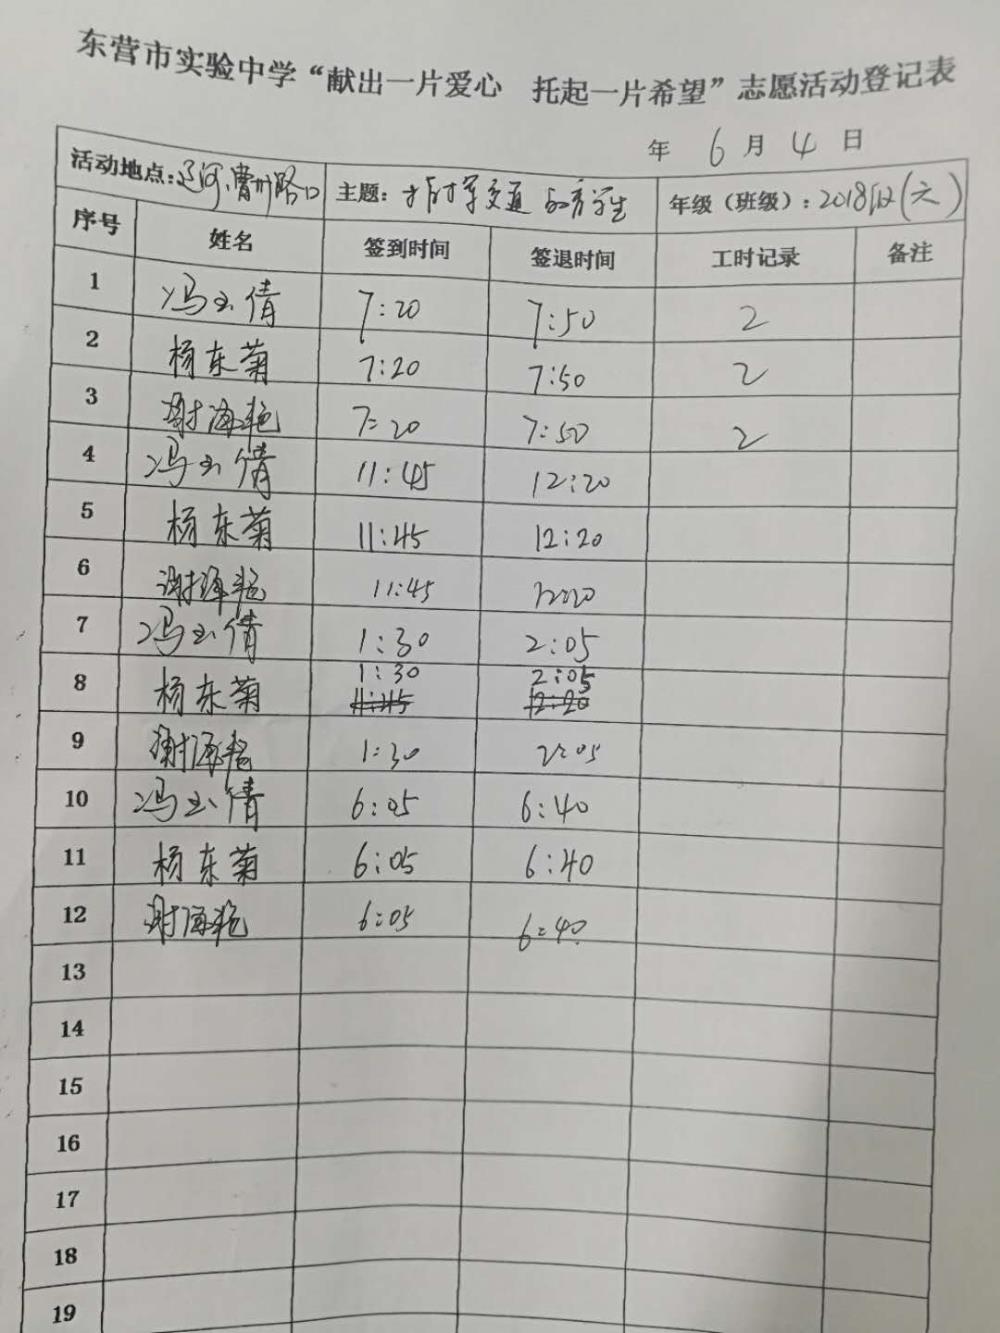 东营市实验中学“献出一片爱心 托起一片希望”志愿活动登记表
年 6 月 4 日
活动地点：辽河、曹州路口 主题： 交通 学生 年级（班级）：2018级(六)
序号 姓名 签到时间 签退时间 工时记录 备注
1 冯玉倩 7:20 7:50 2
2 杨东菊 7:20 7:50 2
3 谢海艳 7:20 7:50 2
4 冯玉倩 11:45 12:20
5 杨东菊 11:45 12:20
6 谢海艳 11:45 12:20
7 冯玉倩 1:30 2:05
1:30 2:05
8 杨东菊 11:45 12:20
9 谢海艳 1:30 2:05
10 冯玉倩 6:05 6:40
11 杨东菊 6:05 6:40
12 谢海艳 6:05 6:40
13
14
15
16
17
18
19